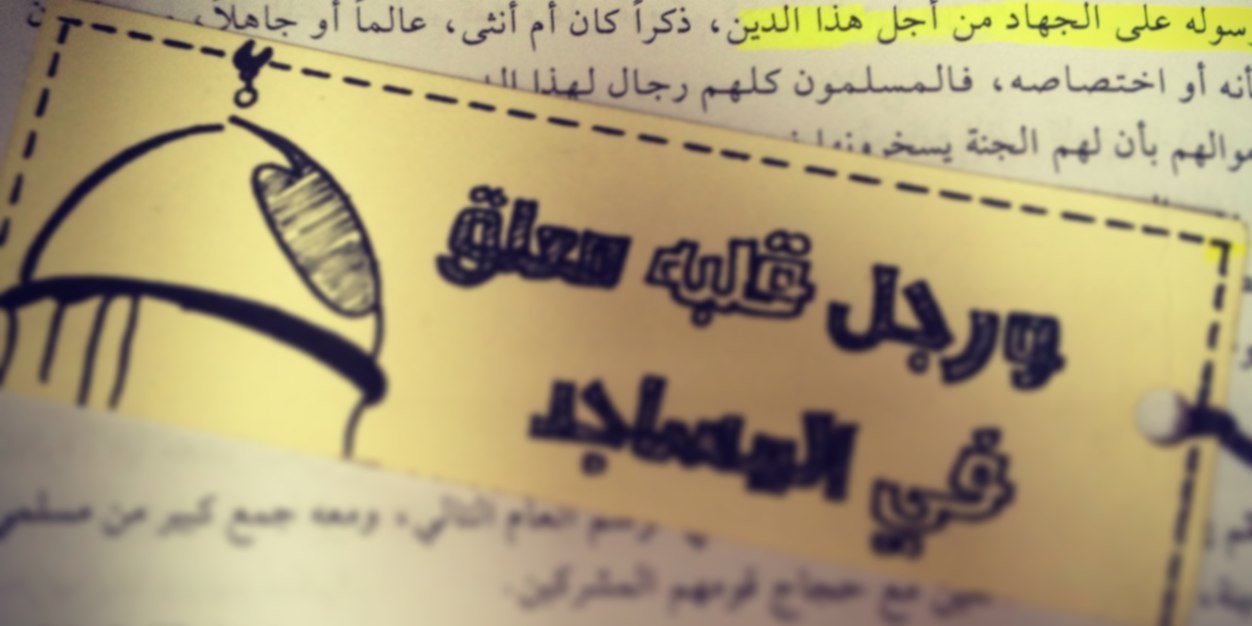 رسوله على الجهاد من أجل هذا الدين، ذكراً كان أم أنثى، عالماً أو جاهلاً،
أو اختصاصه، فالمسلمون كلهم رجال لهذا
بأن لهم الجنة يسخرونها
ورجل قلبه معلق
في المساجد
العام التالي، ومعه جمع كبير من مسلمي
مع حجاج قومهم المشركين.